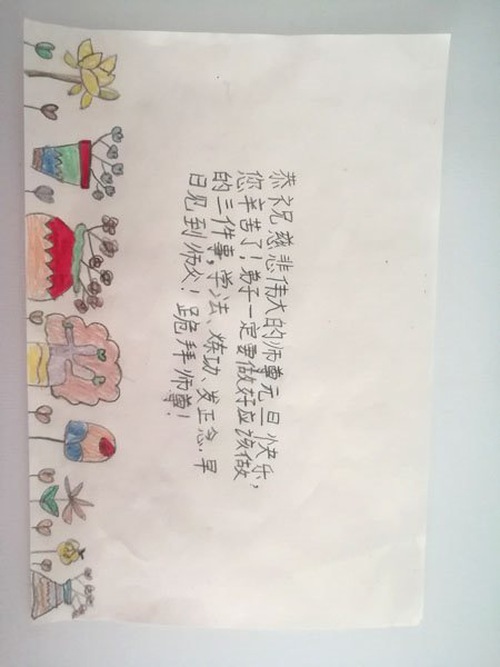 恭祝慈悲伟大的师尊元旦快乐，
您辛苦了！弟子一定要做好应该做
的三件事，学法、炼功、发正念，早
日见到师父！跪拜师尊！